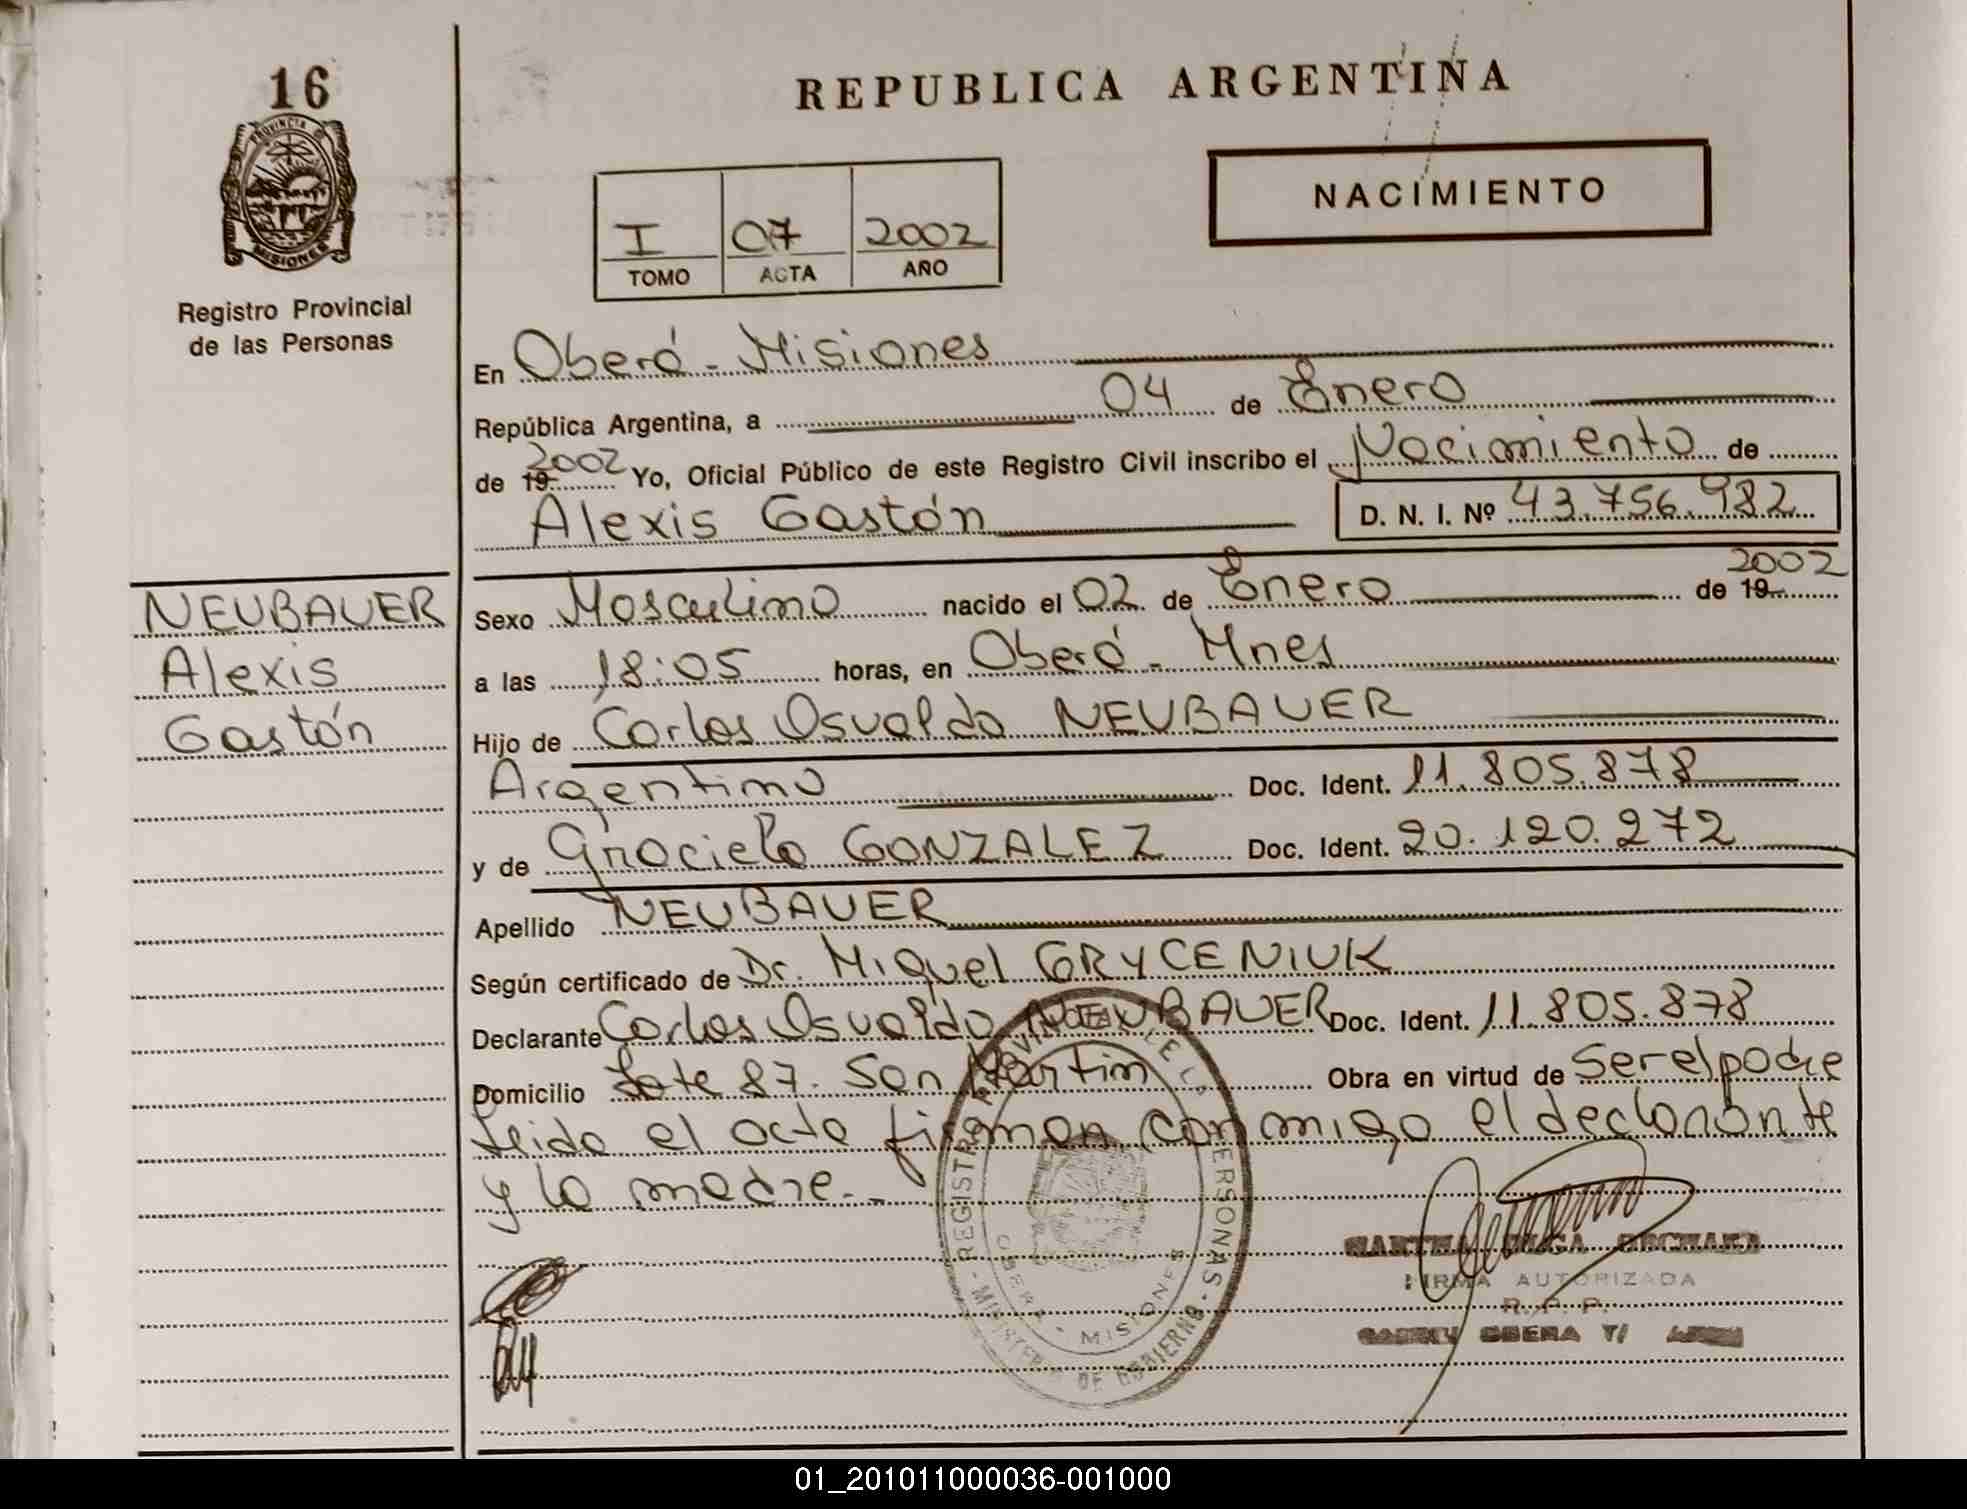 16
REPUBLICA ARGENTINA
PROVINCIA DE
MISIONES
Registro Provincial
de las Personas
NACIMIENTO
I 07 2002
TOMO ACTA AÑO
En Oberá - Misiones
República Argentina, a 04 de Enero
de 19 2002 Yo, Oficial Público de este Registro Civil inscribo el Nacimiento de
Alexis Gastón D. N. I. Nº 43.756.982
NEUBAUER
Alexis
Gastón
Sexo Masculino nacido el 02 de Enero de 19 2002
a las 18:05 horas, en Oberá - Mnes
Hijo de Carlos Osvaldo NEUBAUER
Argentino Doc. Ident. 11.805.878
y de Graciela GONZALEZ Doc. Ident. 20.120.272
Apellido NEUBAUER
Según certificado de Dr. Miguel GRYCENIUK
Declarante Carlos Osvaldo NEUBAUER Doc. Ident. 11.805.878
Domicilio Lote 87. San Martin Obra en virtud de Ser el padre
leida el acta firman conmigo el declarante
y la madre.-
REGISTRO PROVINCIAL DE LAS PERSONAS
MINISTERIO DE GOBIERNO
OBERA - MISIONES
FIRMA AUTORIZADA
R. P. P.
OBERA
01_201011000036-001000